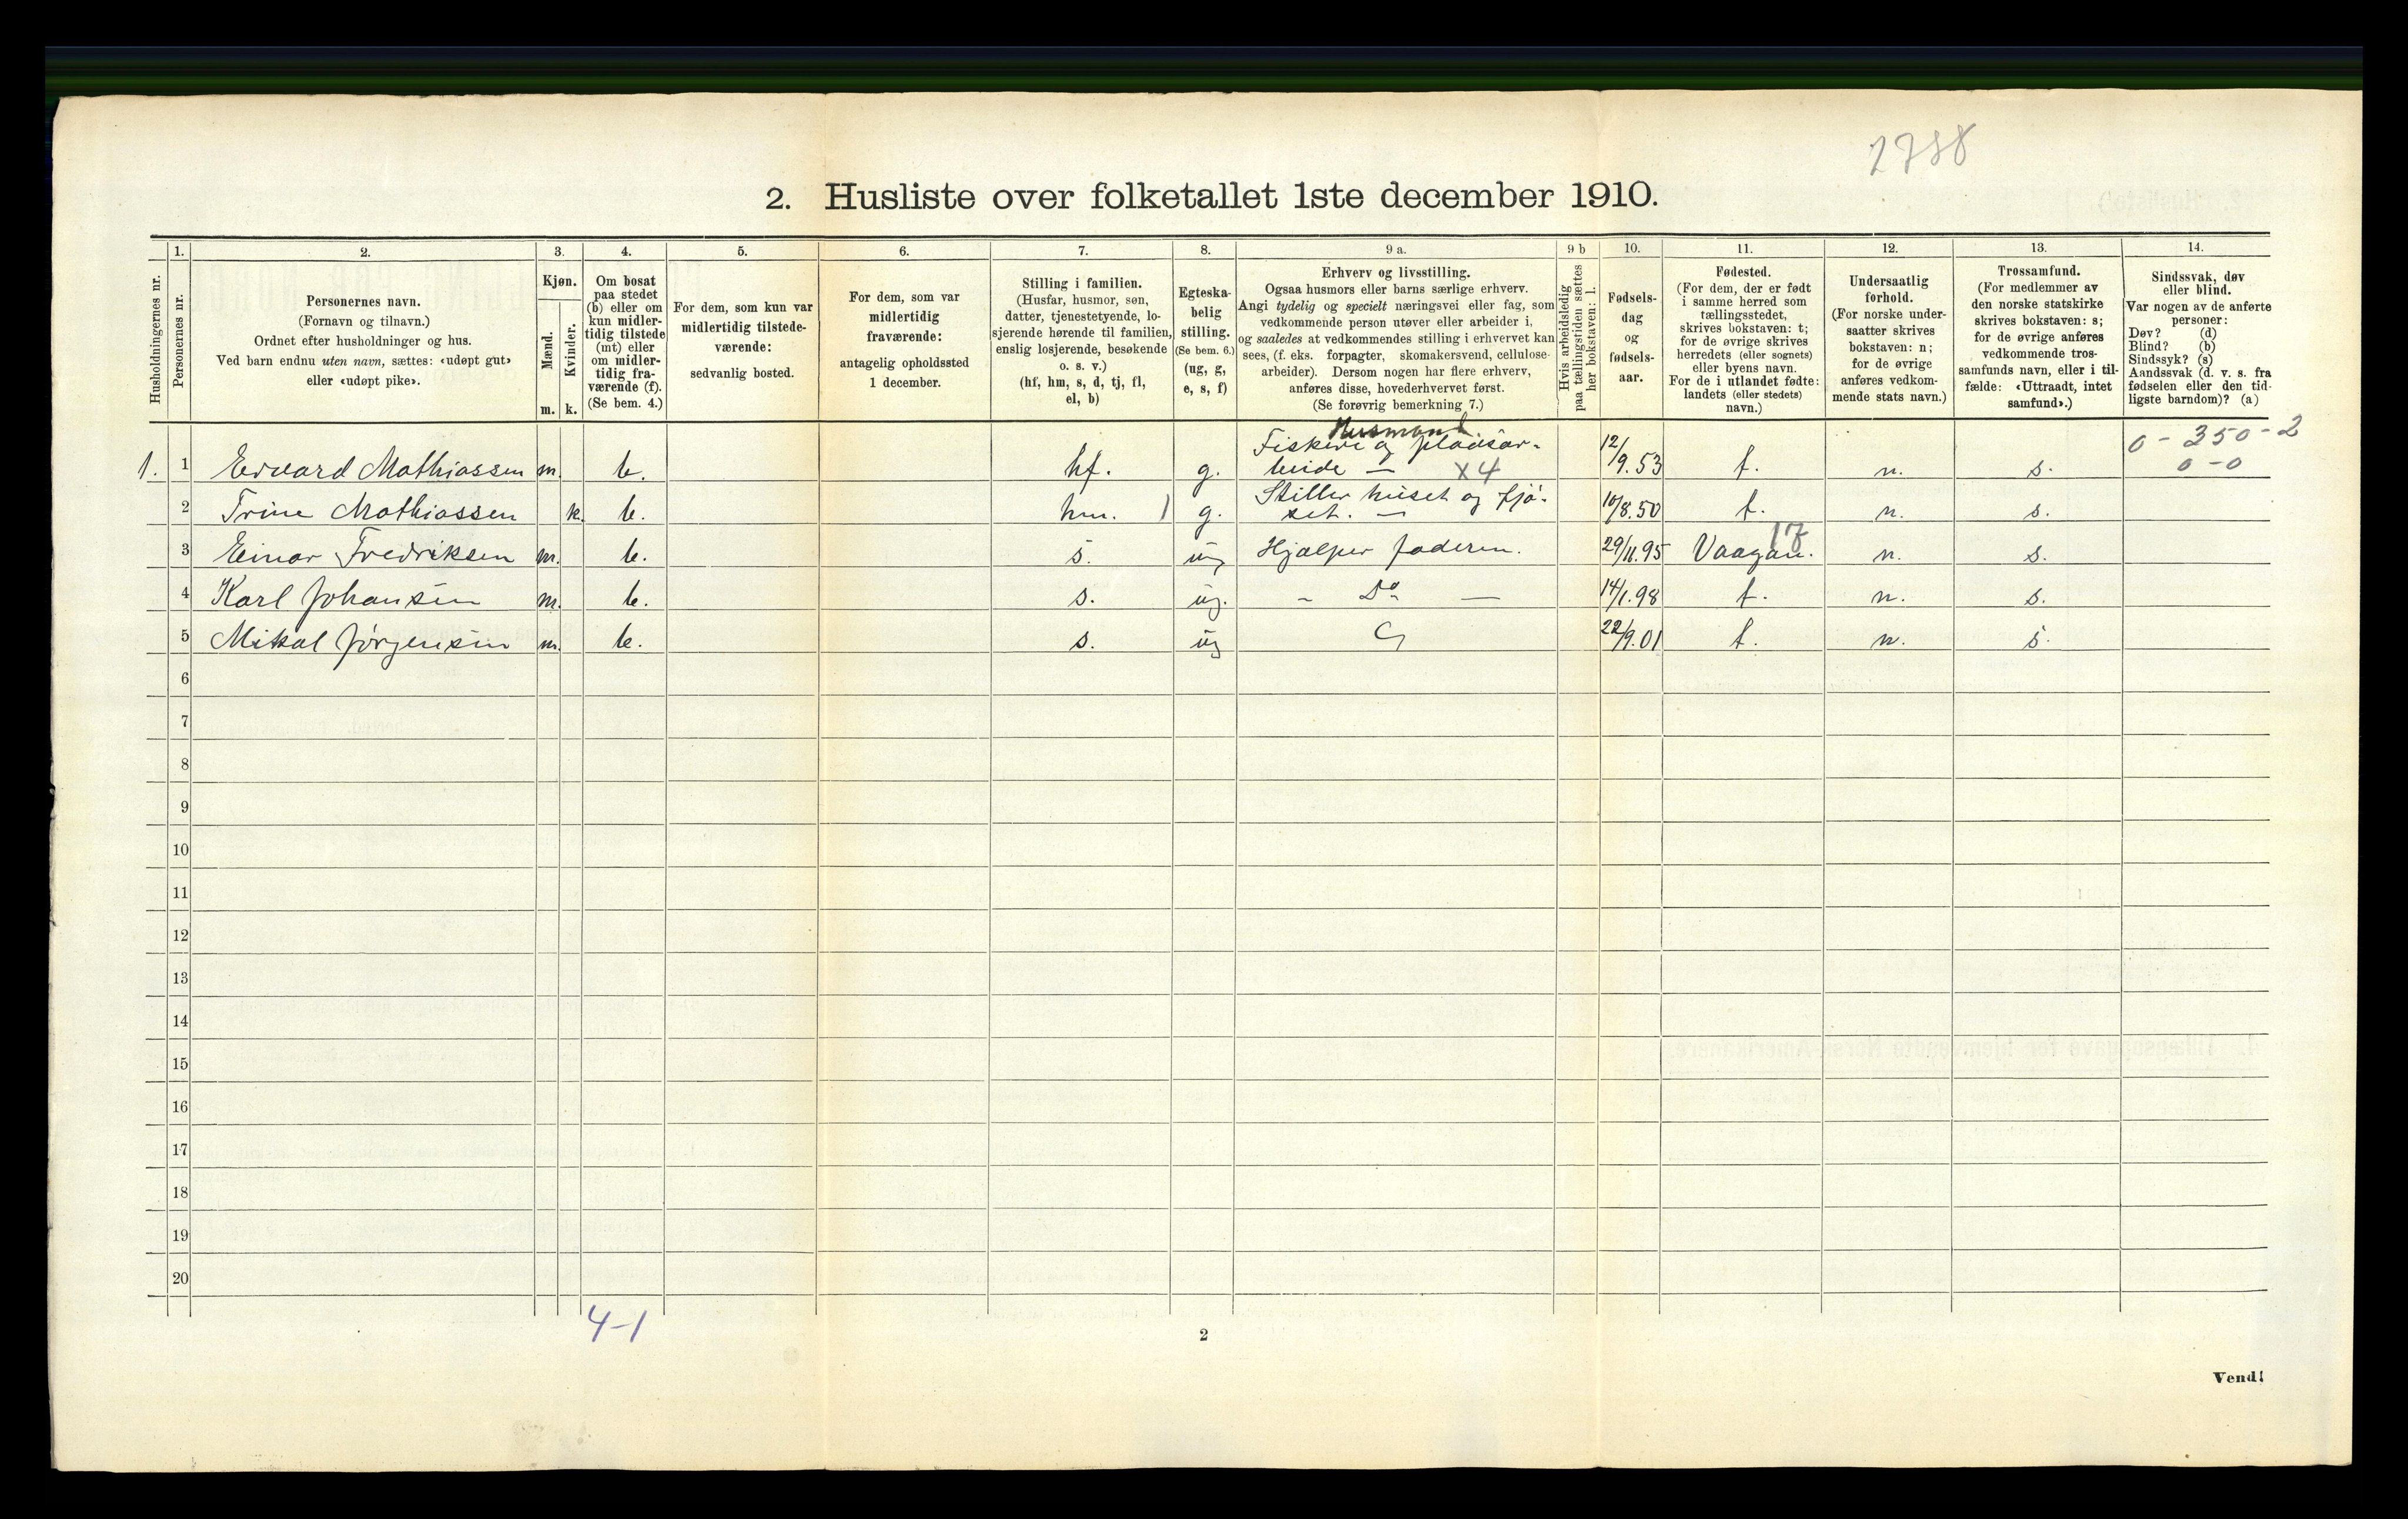 2788
2. Husliste over folketallet 1ste december 1910.
Husholdningernes nr.
1.
Personernes nr.
2.
Personernes navn.
(Fornavn og tilnavn.)
Ordnet efter husholdninger og hus.
Ved barn endnu uten navn, sættes: «udøpt gut»
eller «udøpt pike».
3.
Kjøn.
Mænd.
Kvinder.
m. k.
4.
Om bosat
paa stedet
(b) eller om
kun midler-
tidig tilstede
(mt) eller
om midler-
tidig fra-
værende (f).
(Se bem. 4.)
5.
For dem, som kun var
midlertidig tilstede-
værende:
sedvanlig bosted.
6.
For dem, som var
midlertidig
fraværende:
antagelig opholdssted
1 december.
7.
Stilling i familien.
(Husfar, husmor, søn,
datter, tjenestetyende, lo-
sjerende hørende til familien,
enslig losjerende, besøkende
o. s. v.)
(hf, hm, s, d, tj, fl,
el, b)
8.
Egteska-
belig
stilling.
(Se bem. 6.)
(ug, g,
e, s, f)
9 a.
Erhverv og livsstilling.
Ogsaa husmors eller barns særlige erhverv.
Angi tydelig og specielt næringsvei eller fag, som
vedkommende person utøver eller arbeider i,
og saaledes at vedkommendes stilling i erhvervet kan
sees, (f. eks. forpagter, skomakersvend, cellulose-
arbeider). Dersom nogen har flere erhverv,
anføres disse, hovederhvervet først.
(Se forøvrig bemerkning 7.)
9 b
Hvis arbeidsledig
paa tællingstiden sættes
her bokstaven: l.
10.
Fødsels-
dag
og
fødsels-
aar.
11.
Fødested.
(For dem, der er født
i samme herred som
tællingsstedet,
skrives bokstaven: t;
for de øvrige skrives
herredets (eller sognets)
eller byens navn.
For de i utlandet fødte:
landets (eller stedets)
navn.)
12.
Undersaatlig
forhold.
(For norske under-
saatter skrives
bokstaven: n;
for de øvrige
anføres vedkom-
mende stats navn.)
13.
Trossamfund.
(For medlemmer av
den norske statskirke
skrives bokstaven: s;
for de øvrige anføres
vedkommende tros-
samfunds navn, eller i til-
fælde: «Uttraadt, intet
samfund».)
14.
Sindssvak, døv
eller blind.
Var nogen av de anførte
personer:
Døv? (d)
Blind? (b)
Sindssyk? (s)
Aandssvak (d. v. s. fra
fødselen eller den tid-
ligste barndom)? (a)
Husmand
0 - 350 - 2
0 - 0
1. 1 Edvard Mathiassen m. b. hf. g. Fiskeri og pladsar-
beide — X4 12/9. 53 t. n. s.
2 Trine Mathiassen k. b. hm. 1 g. Steller huset og fjø-
set. — 10/8. 50 t. n. s.
3 Einar Fredriksen m. b. s. ug Hjælper faderen. 29/11. 95 Vaagan. 17 n. s.
4 Karl Johansen m. b. s. ug. - Do — 14/1. 98 t. n. s.
5 Mikal Jørgensen m. b. s. ug 22/9. 01 t. n. s.
6
7
8
9
10
11
12
13
14
15
16
17
18
19
20
4-1
2
Vend!